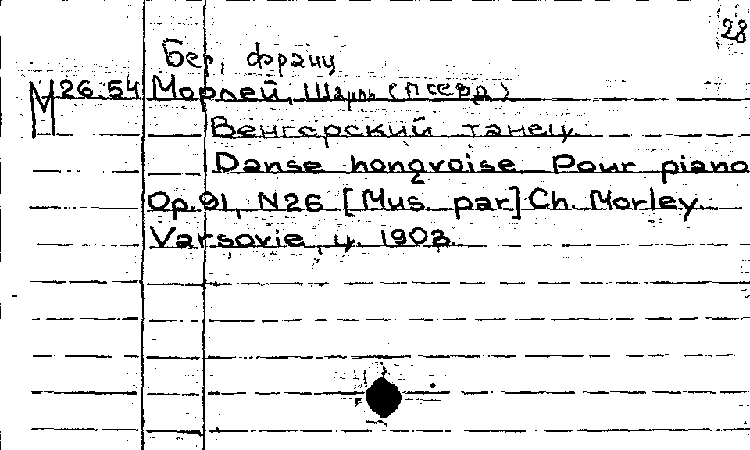 28
Бер, Франц
М 26.54 Морлей, Шарль (псевд)
Венгерский танец.
Danse hongroise. Pour piano
Op. 91, N26 [Mus. par] Ch. Morley.
Varsovie, ц. 1903.